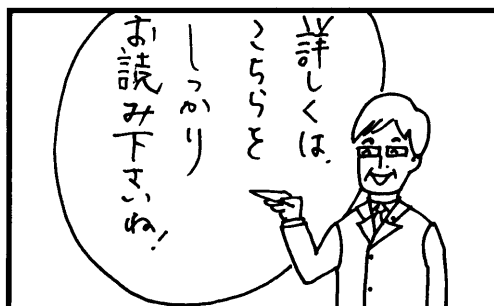 詳しくは、
こちらを
しっかり
お読み下さいね!